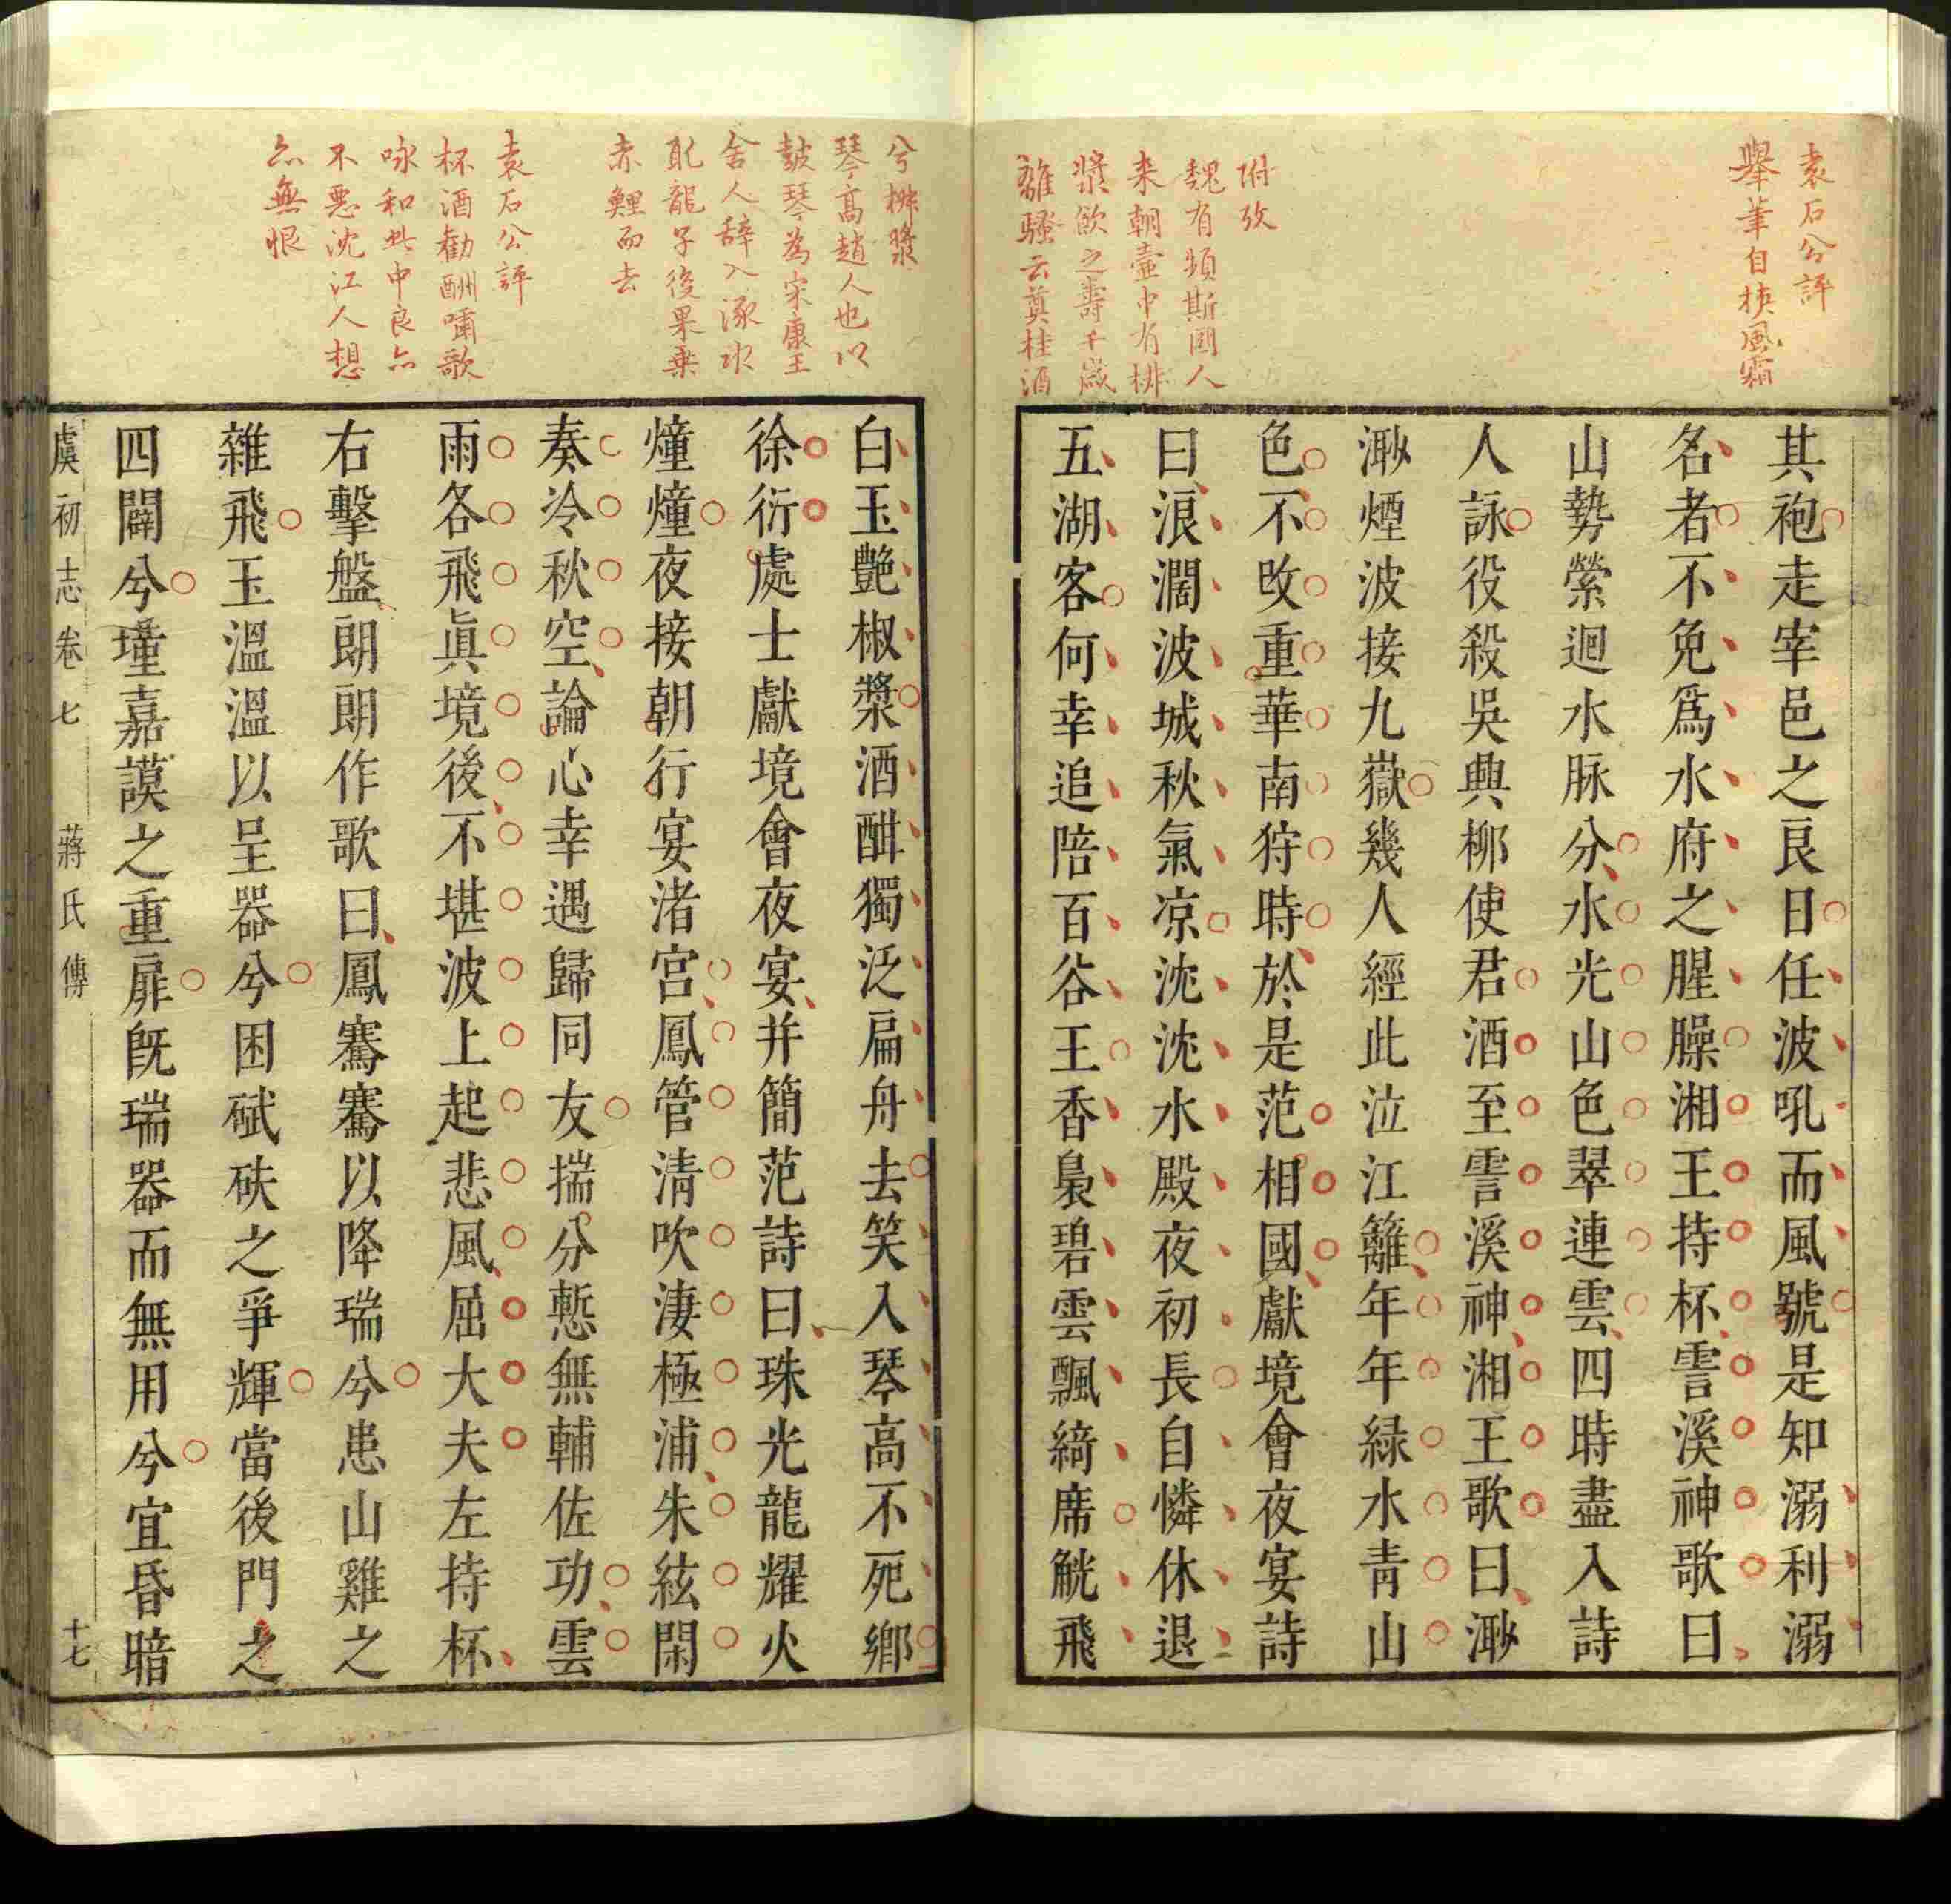 袁石公評
舉筆自挾風霜
附攷
魏有頻斯國人
来朝壺中有椒
漿飲之壽千歲
離騷云奠桂酒
其袍走宰邑之良日任波吼而風號是知溺利溺
名者不免爲水府之腥臊湘王持杯霅溪神歌曰
山勢縈迴水脉分水光山色翠連雲四時盡入詩
人詠役殺吳興柳使君酒至霅溪神湘王歌曰渺
渺煙波接九嶷幾人經此泣江籬年年緑水青山
色不攺重華南狩時於是范相國獻境會夜宴詩
曰浪濶波城秋氣凉沈沈水殿夜初長自憐休退
五湖客何幸追陪百谷王香裊碧雲飄綺席觥飛
兮椒漿
琴高趙人也以
皷琴為宋康王
舍人辭入涿水
取龍子後果乗
赤鯉而去
袁石公評
杯酒勸酬嘯歌
咏和其中良亦
不惡沈江人想
亦無恨
白玉艷椒漿酒酣獨泛扁舟去笑入琴高不死鄉
徐衍處士獻境會夜宴并簡范詩曰珠光龍耀火
燑燑夜接朝行宴渚宫鳳管清吹淒極浦朱絃閑
奏冷秋空論心幸遇歸同友揣分慙無輔佐功雲
雨各飛眞境後不堪波上起悲風屈大夫左持杯
右擊盤朗朗作歌曰鳳騫騫以降瑞兮患山雞之
雜飛玉溫溫以呈器兮困碔砆之爭輝當後門之
四闢兮墐嘉謨之重扉旣瑞器而無用兮宜昏暗
虞初志卷七 蔣氏傳 十七